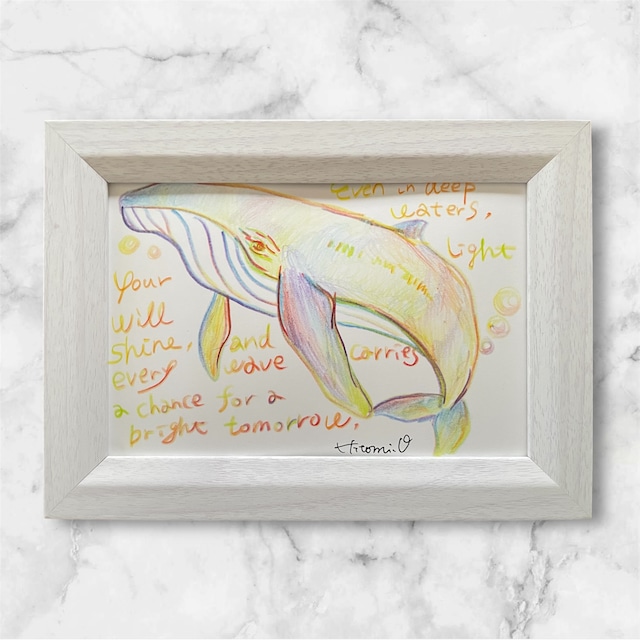 Even in deep
waters,
Light
Your
will
shine, and
every wave carries
a chance for a
bright tomorrow.
Hitomi.O